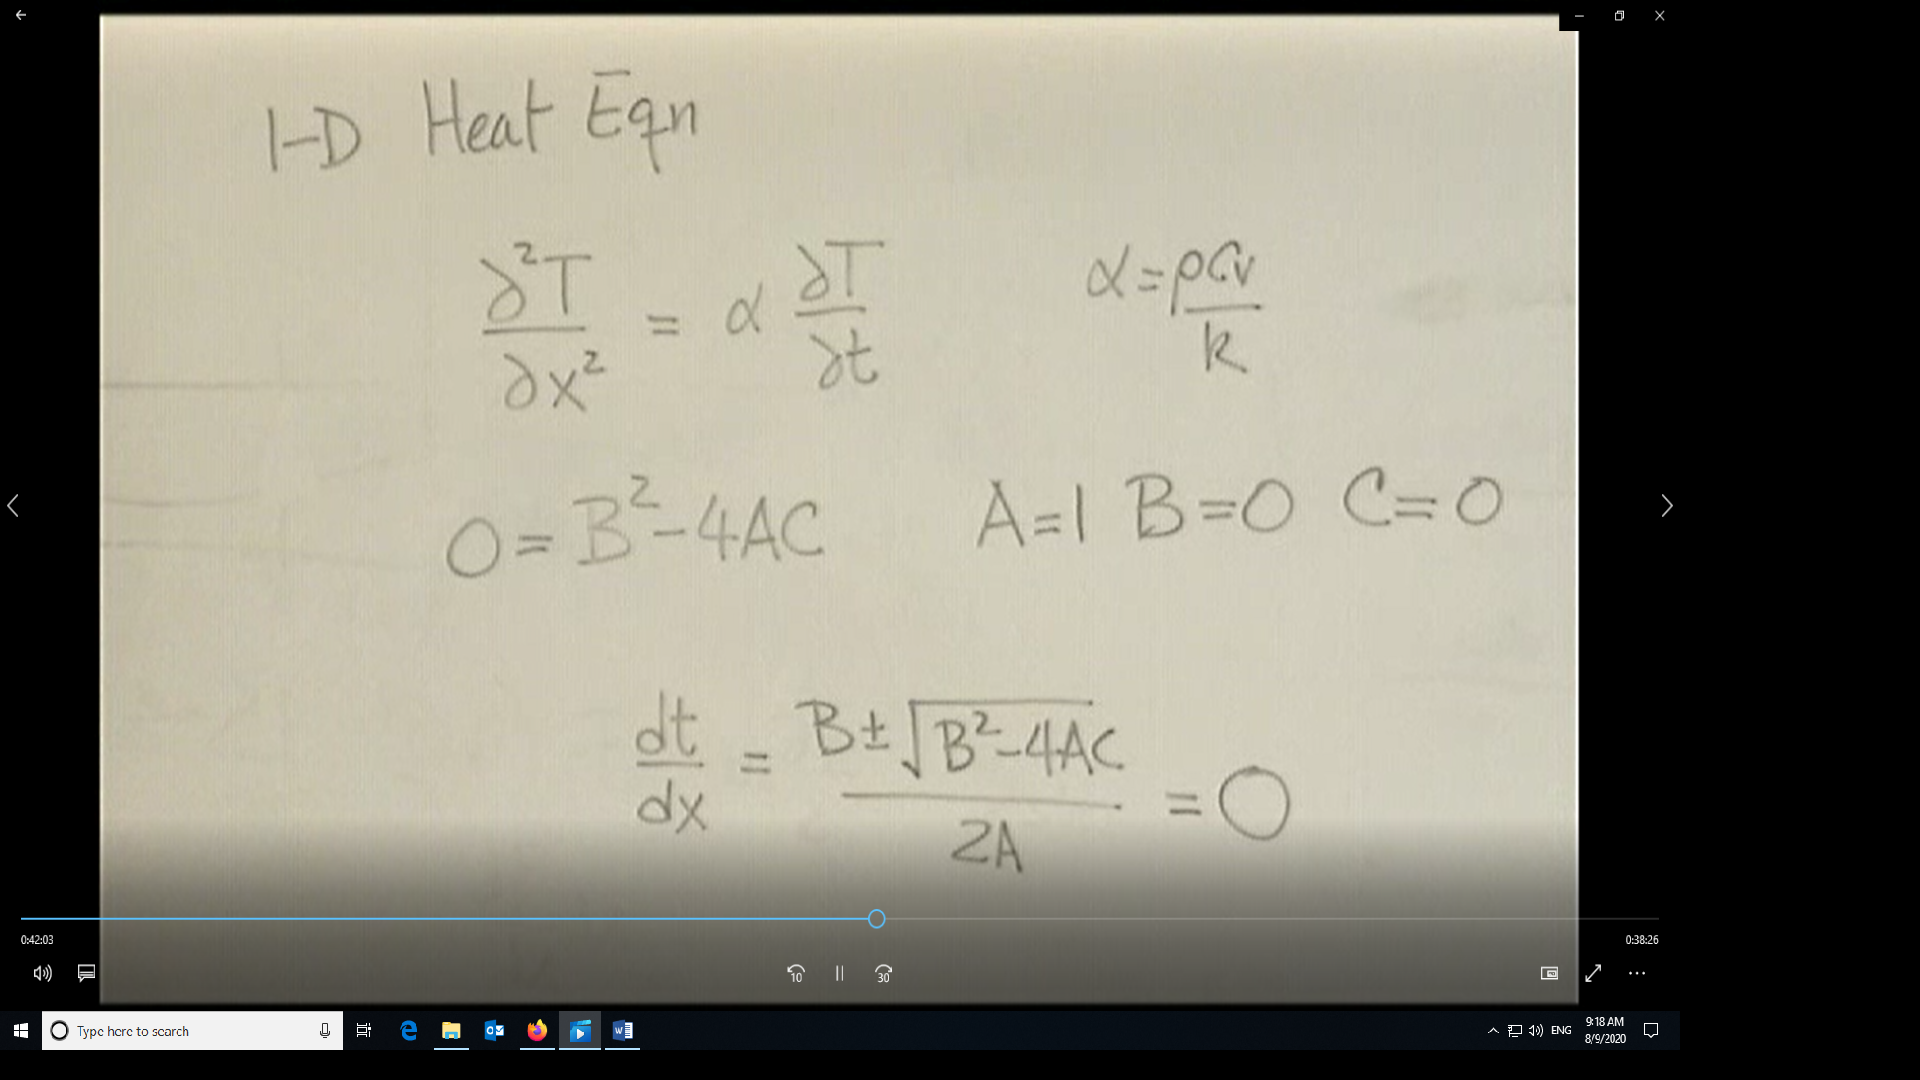 1-D Heat Eqn
∂²T/∂x² = α ∂T/∂t    α = ρCv/k
0 = B² - 4AC    A=1 B=0 C=0
dt/dx = B ± √(B²-4AC) / 2A = 0
0:42:03
0:38:26
10
30
Type here to search
ENG
9:18 AM
8/9/2020